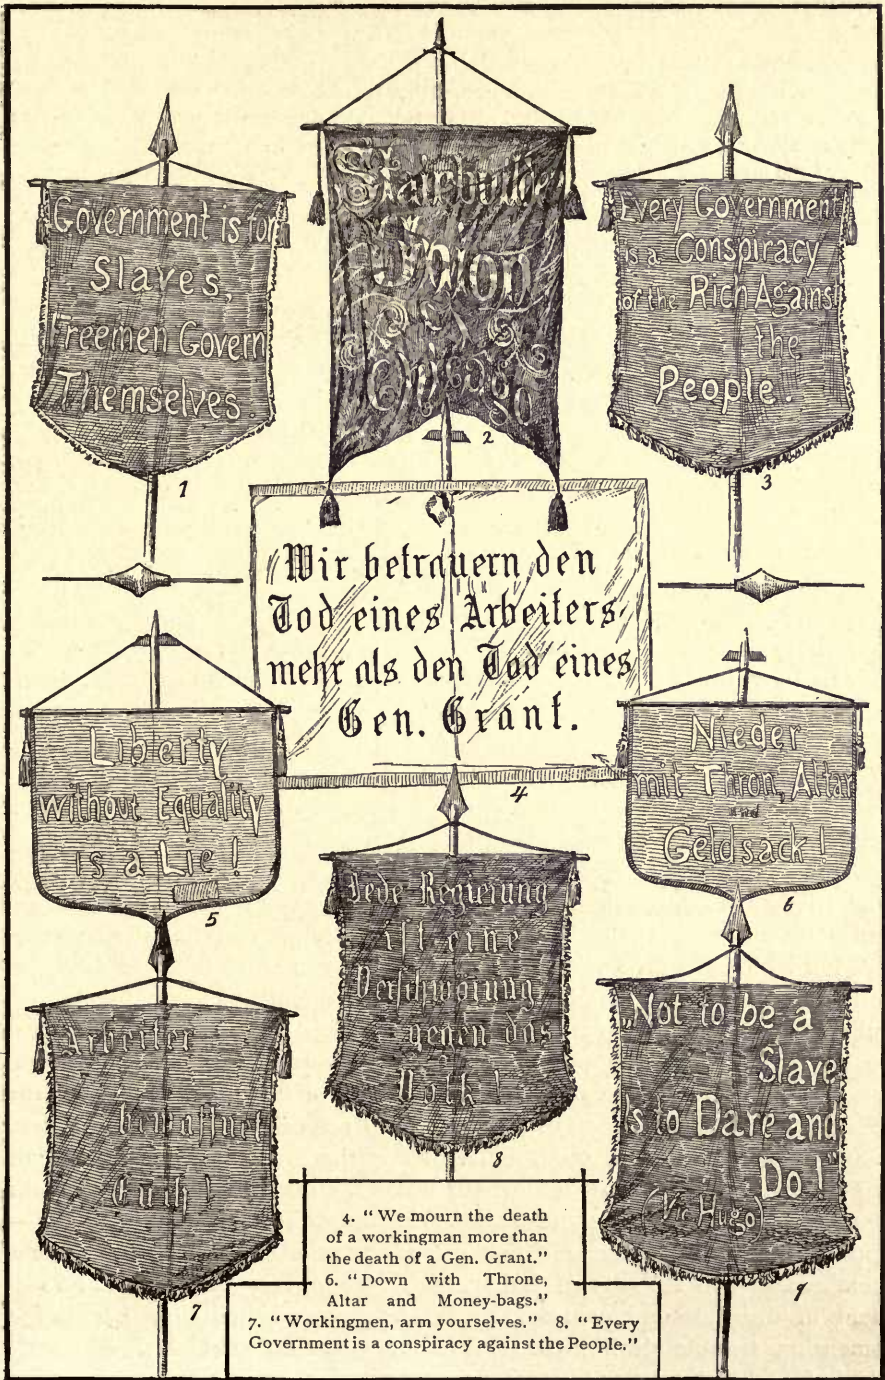 Government is for
Slaves,
Freemen Govern
Themselves.
1
Stairbuilder
Union
Chicago
2
Every Government
is a Conspiracy
of the Rich Against
the
People."
3
Wir betrauern den
Tod eines Arbeiters
mehr als den Tod eines
Gen. Grant.
4
Liberty
without Equality
is a Lie!
5
Nieder
mit Thron, Altar
und
Geldsack!
6
Arbeiter
bewaffnet
Euch!
7
Jede Regierung
ist eine
Verschwörung
gegen das
Volk!
8
„Not to be a
Slave
Is to Dare and
Do!"
(Vic Hugo)
9
4. "We mourn the death
of a workingman more than
the death of a Gen. Grant."
6. "Down with Throne,
Altar and Money-bags."
7. "Workingmen, arm yourselves." 8. "Every
Government is a conspiracy against the People."